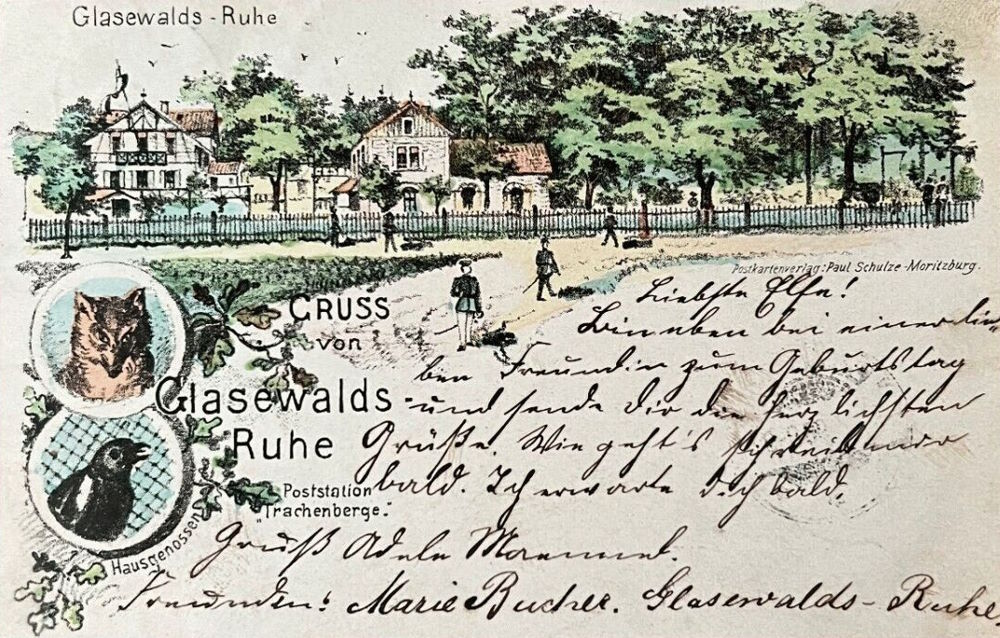 Glasewalds-Ruhe
Postkartenverlag: Paul Schulze-Moritzburg.
GRUSS
von
Glasewalds-
Ruhe
Poststation
"Trachenberge."
Hausgenossen
Liebste Else!
Bin eben bei einer lie
ben Freundin zum Geburtstag
und sende dir die herzlichsten
Grüße. Wie geht's schreib mir
bald. Ich erwarte dich bald.
Gruß Adele
Freundin: Marie Bucher. Glasewalds-Ruhe.